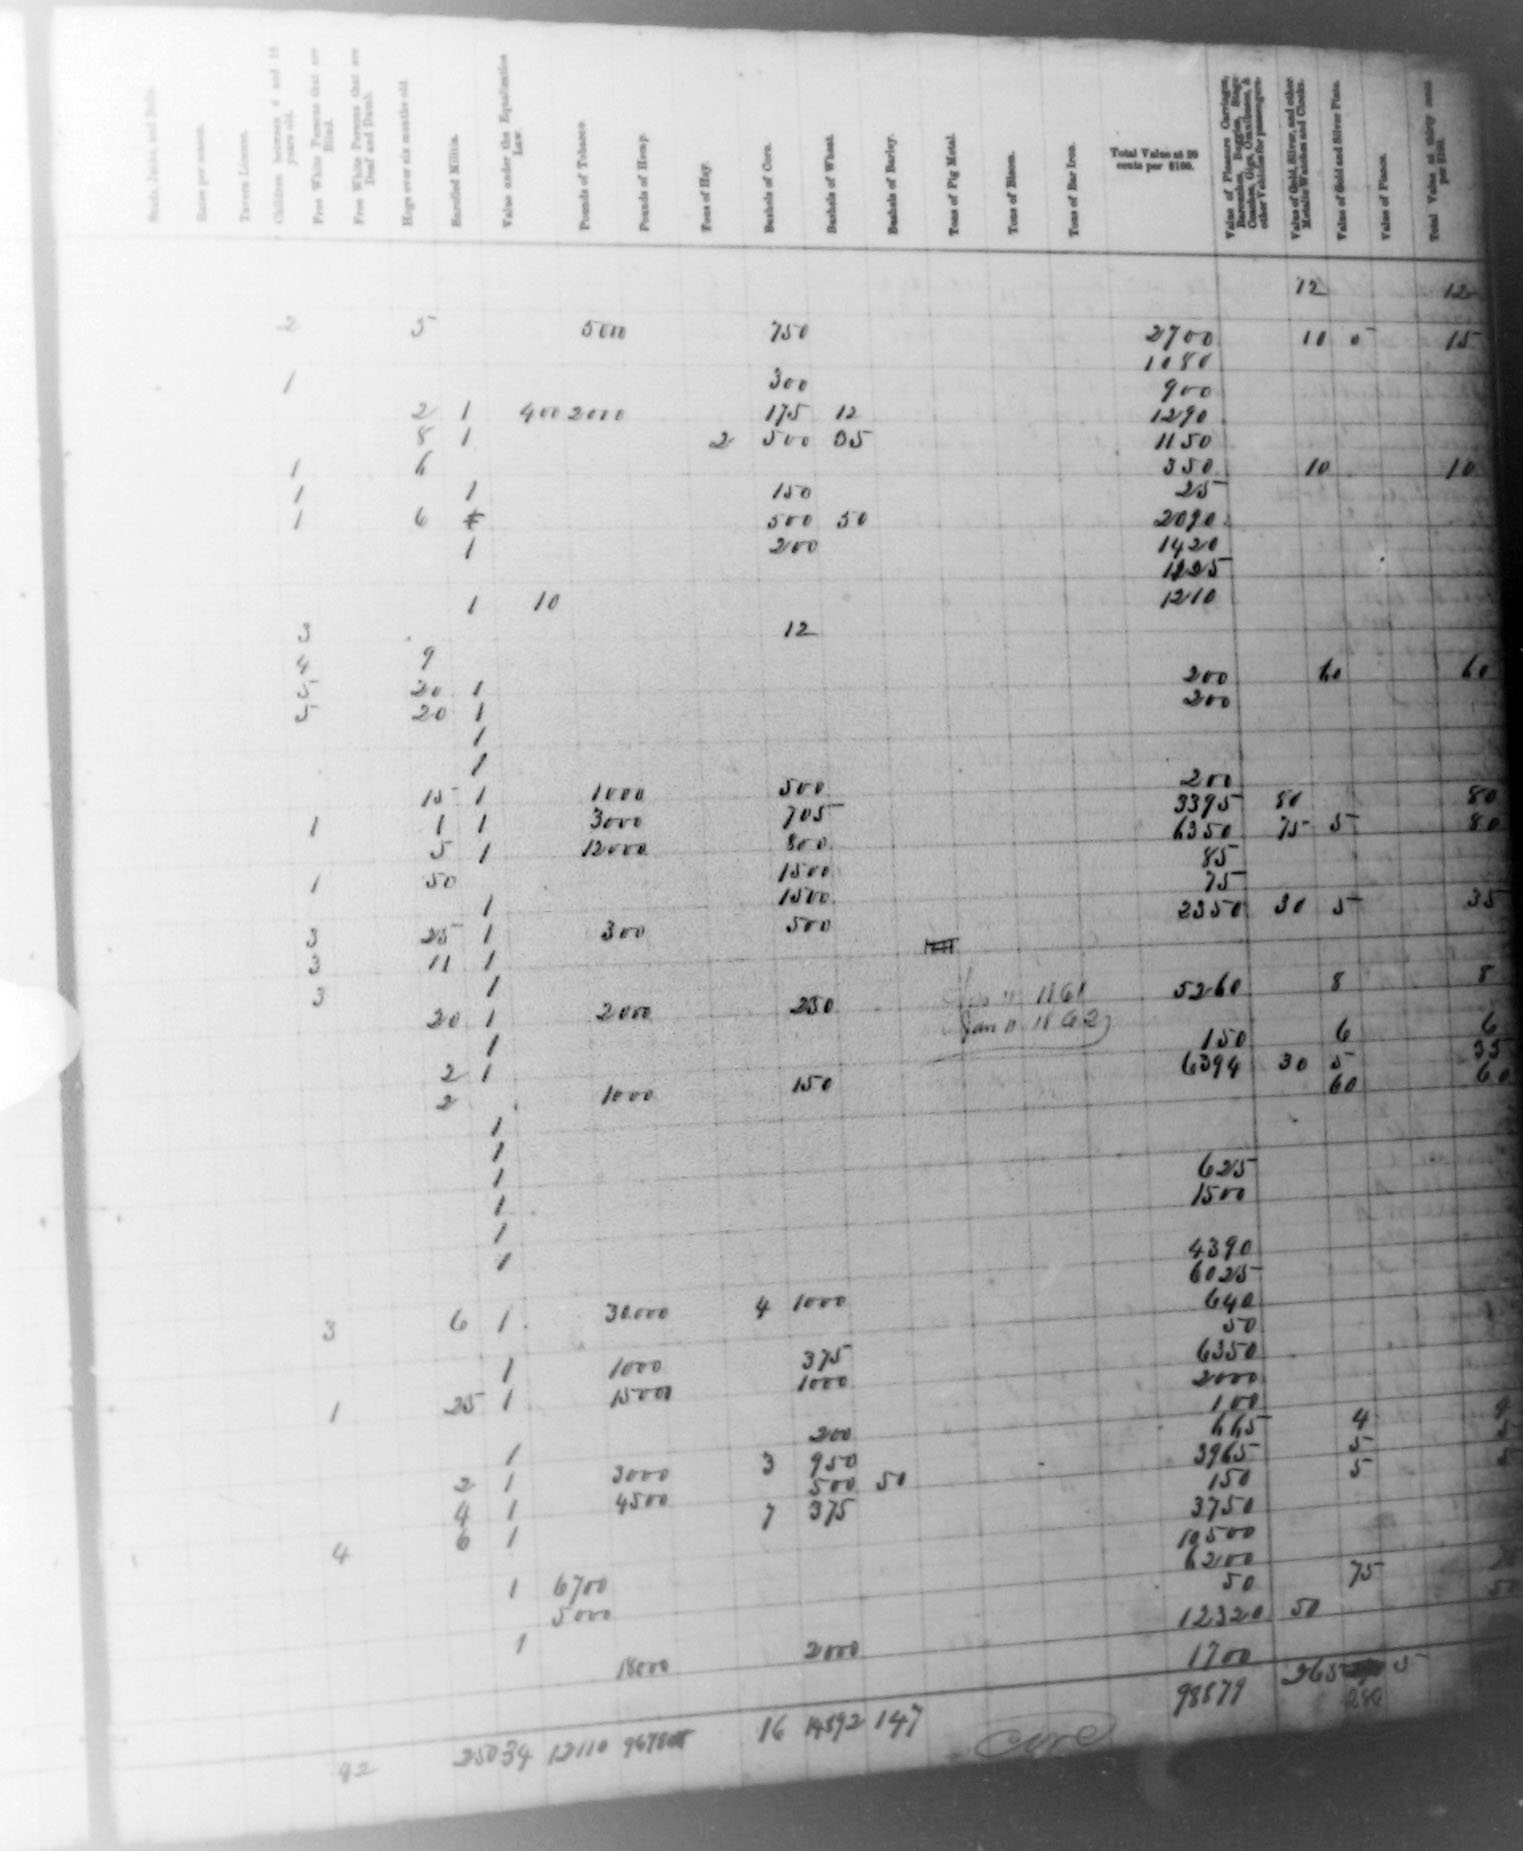 Studs, Jacks, and Bulls.
Rates per season.
Tavern License.
Children between 6 and 18 years old.
Free White Persons that are Blind.
Free White Persons that are Deaf and Dumb.
Hogs over six months old.
Enrolled Militia.
Value under the Equalization Law.
Pounds of Tobacco.
Pounds of Hemp.
Tons of Hay.
Bushels of Corn.
Bushels of Wheat.
Bushels of Barley.
Tons of Pig Metal.
Tons of Bloom.
Tons of Bar Iron.
Total Value at 20 cents per $100.
Value of Pleasure Carriages, Barouches, Buggies, Stage-Coaches, Gigs, Omnibuses, & other Vehicles for passengers.
Value of Gold, Silver, and other Metallic Watches and Clocks.
Value of Gold and Silver Plate.
Value of Pianos.
Total Value at thirty cents per $100.
12 12
2 5 5000 750 2700 10 5 15
1080
1 300 900
2 1 400 2000 175 12 1290
8 1 2 500 35 1150
1 6 350 10 10
1 1 150 25
1 6 500 50 2090
1 200 1420
1225
1 10 1210
3 12
4 9 200 60 60
5 20 1 200
5 20 1
1
1 200
15 1 1000 500 3395 80 80
1 1 1 3000 705 6350 75 5 80
5 1 12000 800 85
1 50 1500 75
1 1500 2350 30 5 35
3 25 1 300 500
3 11 1
3 1 1861 5260 8 8
20 1 2000 250 Jan 11 1862
1 150 6 6
2 1 6394 30 5 35
2 1000 150 60 60
1
1
1 625
1 1500
1
1 4390
6025
3 6 1 30000 4 1000 640
50
1 1000 375 6350
1 25 1 15000 1000 2000
100
200 665 4
1 3 950 3965 5
2 1 3000 500 50 150 5 5
4 1 4500 7 375 3750
4 6 1 10500
6200
1 6700 50 75
5000 12320 50 50
1
18000 2000 1700
92 250 34 12110 16 14592 147 98579 265 5